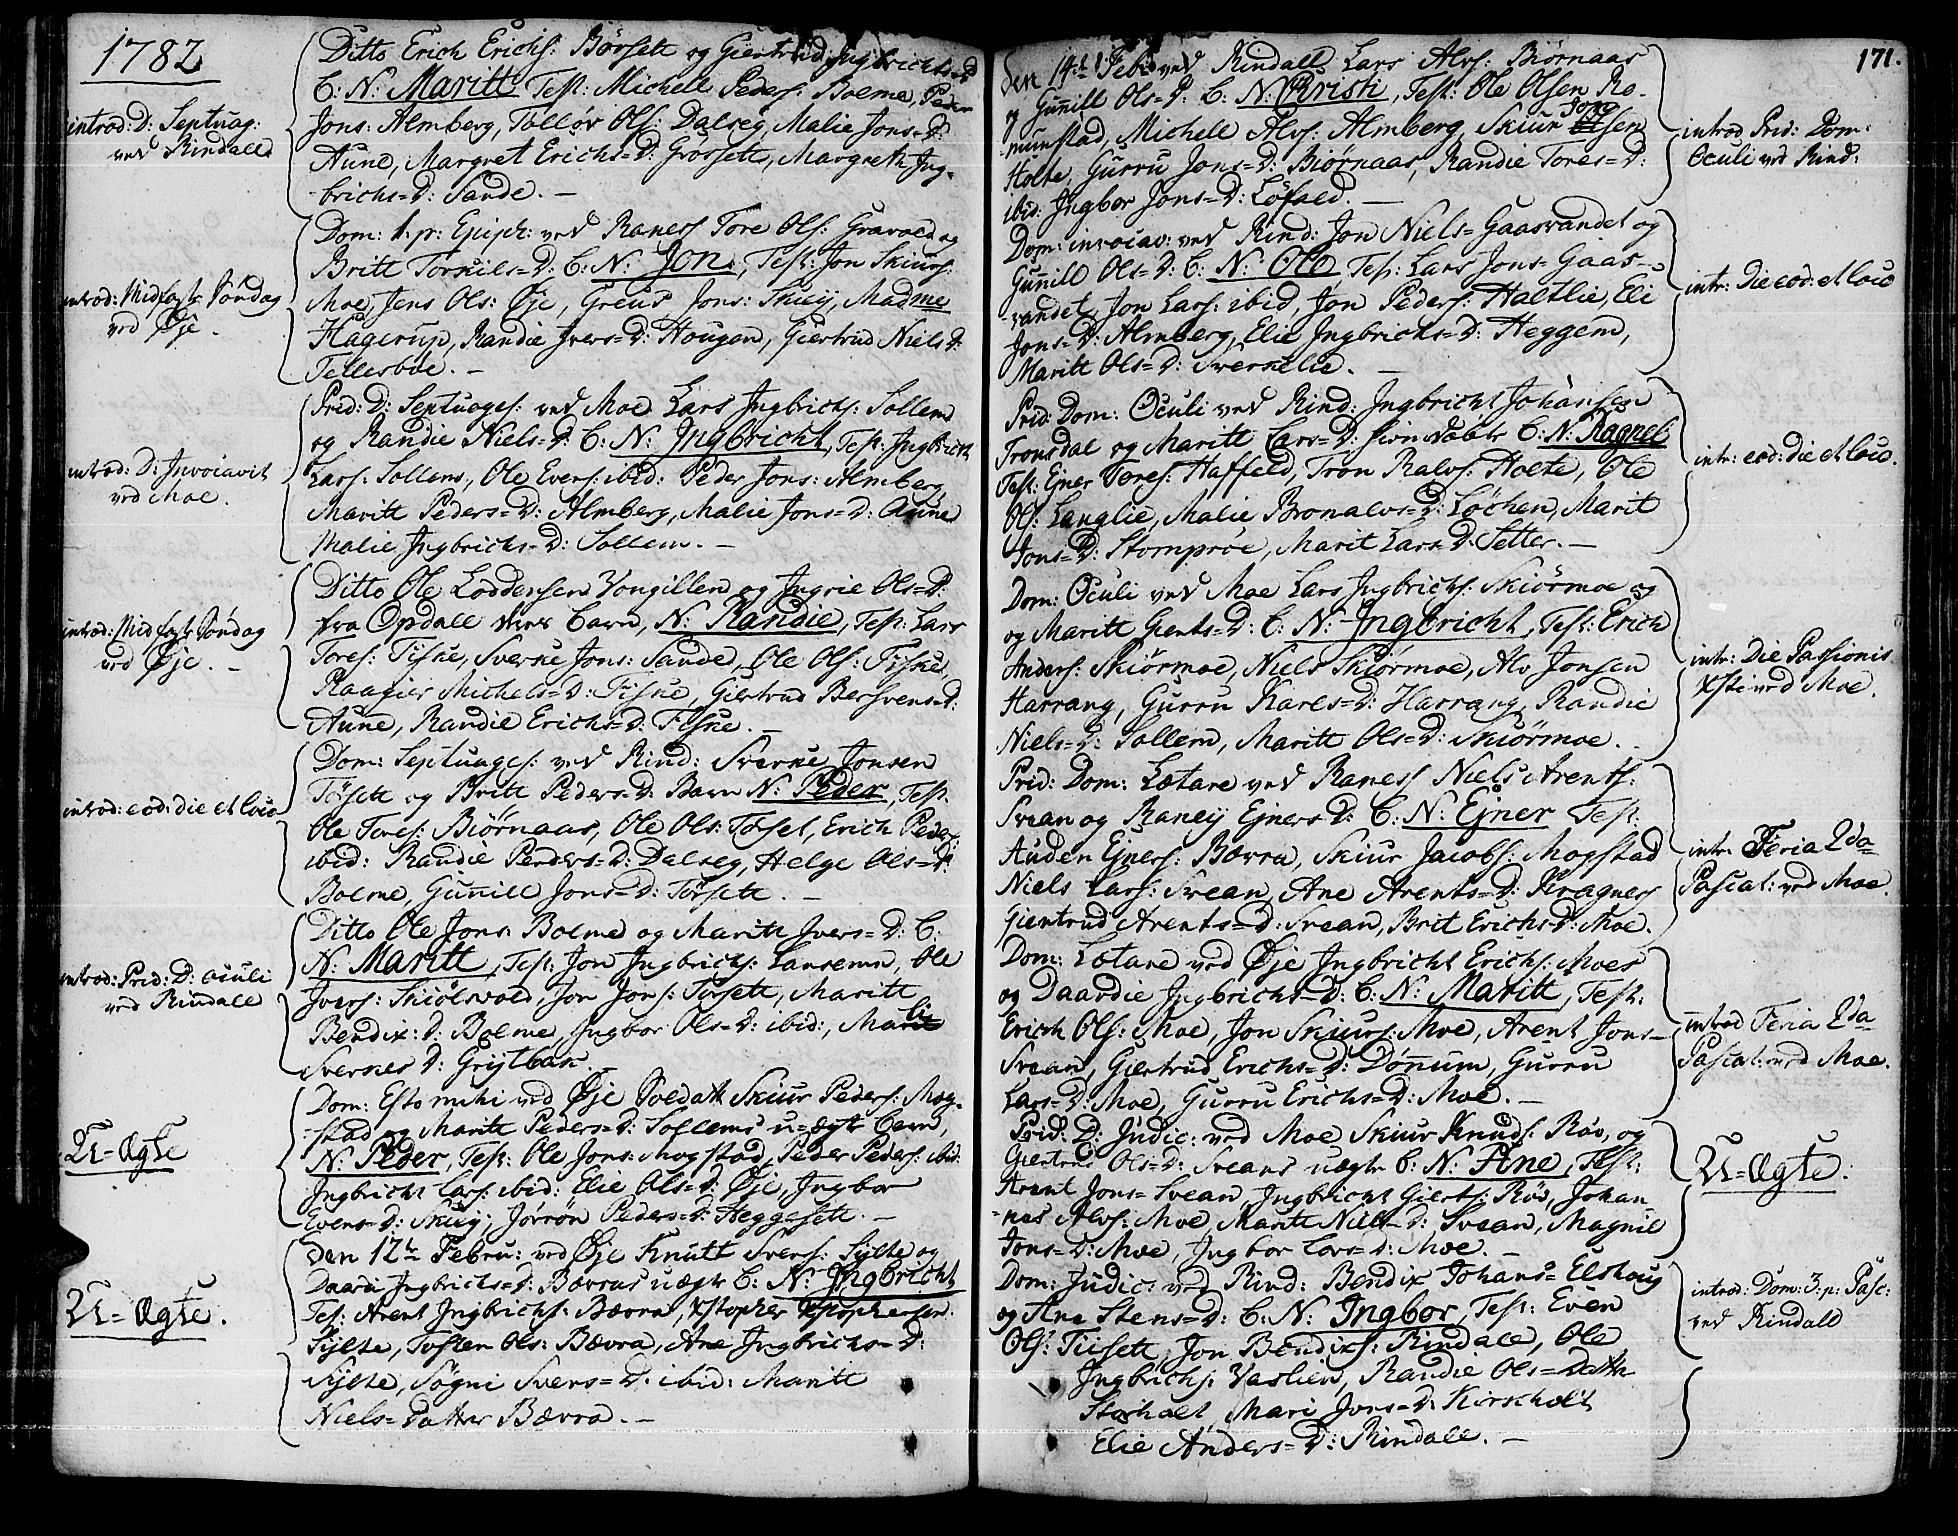 1782
Ditto Erich Erichs: Börsett og Giertrud Ingbrichts=D
C: N: Maritt Test: Michell Peders: Bolme, Peder
Jons: Almberg, Tollöv Ols: Dalseg, Malie Jons=D:
Aune, Margret Erichs=D: Grösett, Margreth Ing-
brichs=D: Sande. —
introd: D: Septuag:
ved Rindall
Dom: 1. p: Epiph: ved Raness Tore Ols: Gravold og
Britt Torkils=D: C: N: Jon, Test: Jon Skiurs:
Moe, Jens Ols: Øje, Greus Jons: Skiey, Madme
Hagerup, Randie Ivers=D: Hougen, Giertrud Niels D:
Tellesböe. —
introd: Midfaste Söndag
ved Øje.
Prid: D: Septuages: ved Moe Lars Ingbrichs: Sollem
og Randie Niels=D: C: N: Ingbricht, Test: Ingbricht
Lars: Sollems, Ole Evers: ibid: Peder Jons: Almberg
Maritt Peders=D: Almberg, Malie Jons=D: Aune
Malie Ingbrichs=D: Sollem. —
introd: D: Invocavit
ved Moe.
Ditto Ole Loddensen Vongillen og Ingrie Ols=D:
fra Opdall deres Barn, N: Randie, Test: Lars
Tores: Fiske, Sverke Jons: Sande, Ole Ols: Fiske,
Raagier Michels=D: Fiske, Giertrud Bersvens=D:
Aune, Randie Erichs=D: Fiske. —
introd: Midfaste Söndag
ved Øje. —
Dom: Septuages: ved Rind: Sverke Jonsen
Törsett og Britt Peders=D: Barn N: Peder, Test:
Ole Tores: Biörnaas, Ole Ols: Töset, Erich Peders:
ibid: Randie Penders=D: Dalseg, Helge Ols=D:
Bolme, Gunill Jons=D: Törsett. —
introd: eod: die et loco
Ditto Ole Jons: Bolme og Maritt Ivers=D: C:
N: Maritt, Test: Jon Ingbrichs: Lansemn, Ole
Ivers: Skiölsvold, Jon Jons: Törsett, Maritt
Bendix: d: Bolme, Ingbor Ols=D: ibid:, Marit
Svernes D: Grytbak.
introd: Prid: D: oculi
ved Rindall
Dom: Esto mihi ved Øje Soldatt Skiur Peders: Mog-
stad og Maritt Peders=D: Sollems u=ægte Barn,
N: Peder, Test: Ole Jons: Mogstad, Peder Peders: ibid:
Ingbricht Lars: ibid: Elie Ols=D: Øje, Ingbor
Evens=D: Skiey, Jörrön Peders=D: Heggesett. —
U=Ægte
Den 12te Febru: ved Øje Knutt Svers: Sylte og
Daardi Ingbrichs=D: Bævras uægte C: N: Ingbricht
Tes: Arent Ingbrichs: Bævra, Xstopher Xstophersen:
Sylte, Tosten Ols: Bævra, Ane Ingbrichs=D:
Sylte, Sögni Svers=D: ibid: Maritt
Niels=Datter Bævra. —
U=Ægte.
171.
den 14te Feb: ved Rindall Lars Alvs: Biörnaas
og Gunill Ols=D: C: N: Kristi, Test: Ole Olsen Ro-
munstad, Michell Alvs: Almberg, Skiur Jons
Holte, Gurru Jons=D: Biörnaas, Randie Tores=D:
ibid: Ingbor Jons=D: Löfald. —
introd Prid: Dom:
Oculi ved Rind:
Dom: invocav: ved Rind: Jon Niels= Gaasvandet og
Gunill Ols=D: C: N: Ole Test: Lars Jons= Gaas-
vandet, Jon Lars: ibid, Jon Peders: Haltlie, Eli
Jons=D: Almberg, Elie Ingbrichs=D: Heggem,
Maritt Ols=D: Sverkelie. —
intr: Die eod: et loco
Prid: Dom: Oculi ved Rind: Ingbricht Johansen
Tronsdal og Maritt Lars=D: C: N: Ragnel
Test: Ejner Tores: Haffeld, Tron Ralvs: Holte, Ole
Ols: Langlie, Malie Bronalvs=D: Löchen, Marit
Jons=D: Stomproe, Marit Lars D: Setter. —
intr: eod: die et loco.
Dom: Oculi ved Moe Lars Ingbrichs: Skiörmoe og
og Maritt Gients=D: C: N: Ingbricht, Test: Erich
Anders: Skiörmoe, Niels Skiörmoe, Alv Jonsen
Harrang, Gurru Kares=D: Harrang, Randie
Niels=D: Sollem, Maritt Ols=D: Skiörmoe. —
intr: Die Passionis
Xsti ved Moe.
Prid: Dom: Lætare ved Raness Niels Arents:
Svean og Raney Ejners D: C: N: Ejner Test:
Auden Ejners: Bævra, Skiur Jacobs: Mogstad
Niels Lars: Svean, Ane Arents=D: Kragness
Giertrud Arents=D: Svean, Brit Erichs D: Moe.
intr: Feria 2da
Pascal: ved Moe.
Dom: Lætare ved Øje Ingbricht Erichs: Moes
og Daardie Ingbrichs=D: C: N: Maritt, Test:
Erich Ols: Moe, Jon Skiurs: Moe, Arent Jons-
Svean, Giertrud Erichs=D: Dönum, Gurru
Lars=D: Moe, Gurru Erichs=D: Moe. —
introd Feria 2da
Pascal: ved Moe.
Prid: D: Judic: ved Moe Skiur Knuds: Röv, og
Giertrud Ols=D: Sveans uægte C: N: Ane, Test:
Arent Jons= Svean, Ingbricht Gierts: Röv, Johan-
nes Alvs: Moe, Maritt Niels=D: Svean, Magnil
Jons=D: Moe, Ingbor Lars=D: Moe. —
U=Ægte:
Dom: Judic: ved Rind: Bendix Johans= Elshoug
og Ane Stens=D: C: N: Ingbor, Test: Even
Ols: Tiisett, Jon Bendixs: Rindall, Ole
Ingbrichs: Vaslien, Randie Ols=Datter
Storholt, Mari Jons=D: Kirscholt
Elie Anders=D: Rindall. —
introd: Dom: 3: p: Pasc:
ved Rindall